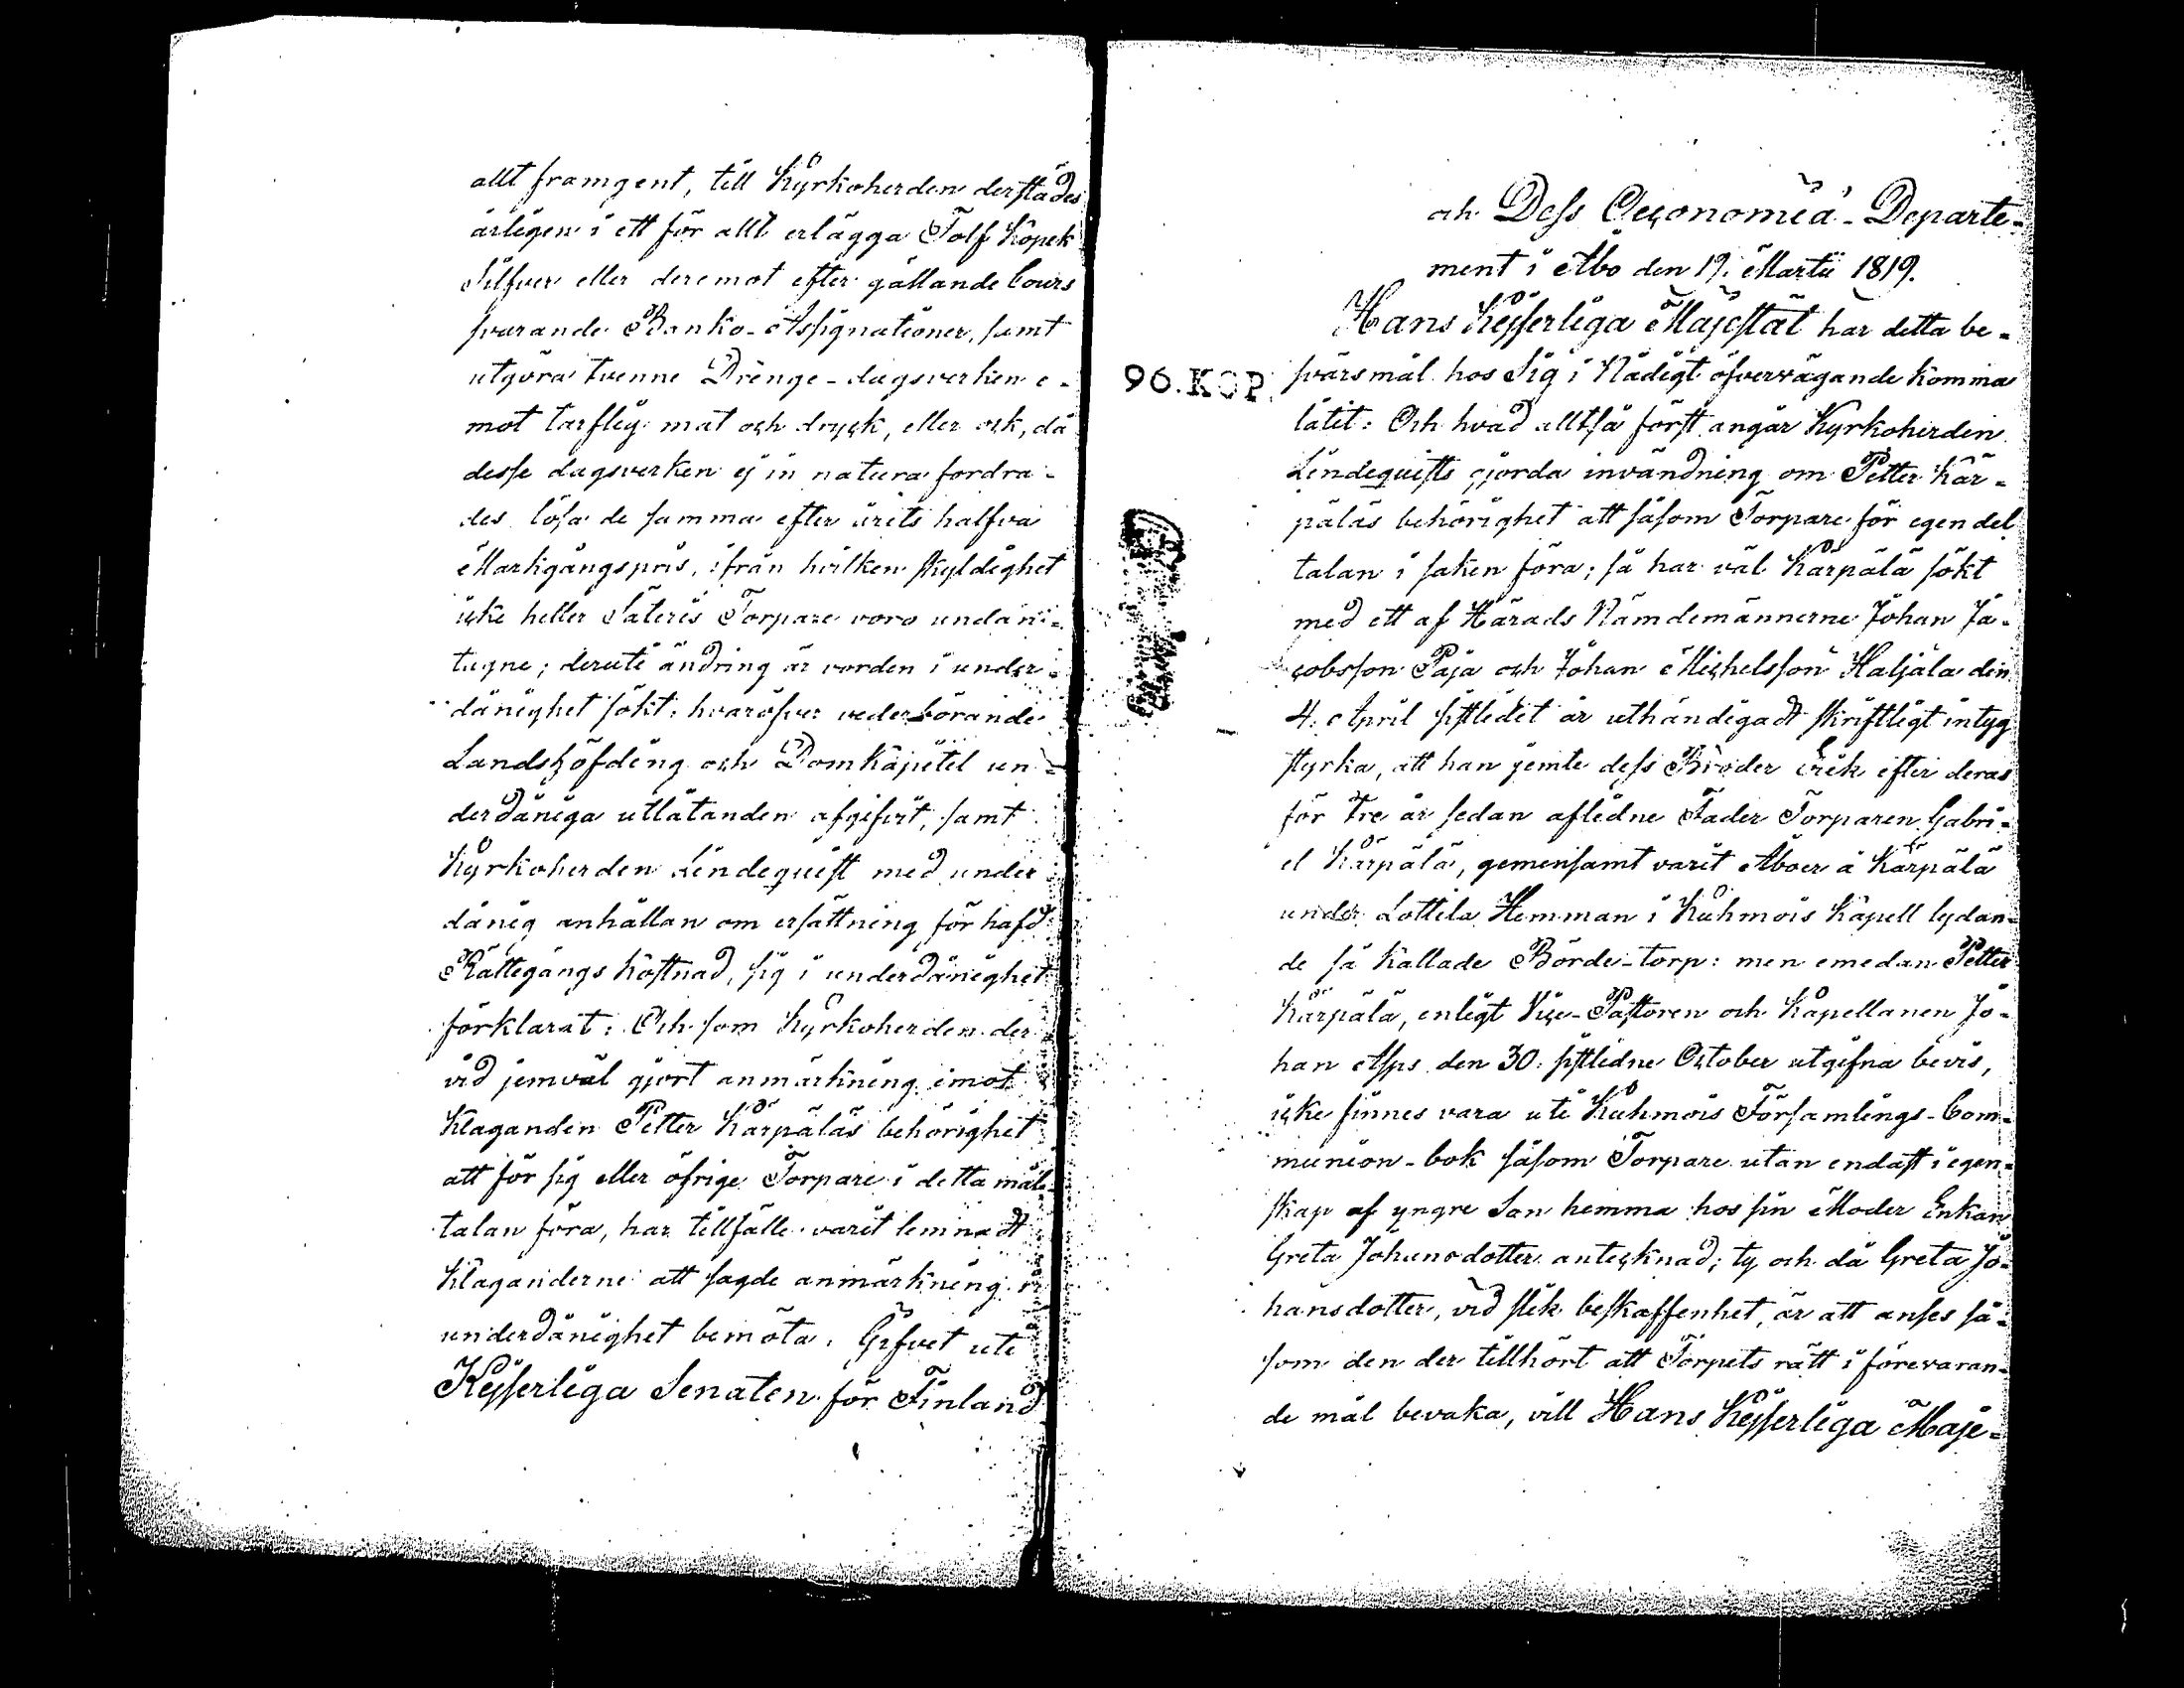 allt framgent, till Kyrkoherden derstädes
årligen i ett för allt erlägga Tolf Kopek
Silfver eller deremot efter gällande Cours
svarande Banko-Assignationer, samt
utgöra tvenne Dränge-dagsverken e-
mot tarflig mat och dryck, eller ock, då
desse dagsverken ej in natura fordra-
des lösa de samma efter årets halfva
Markgångspris, ifrån hvilken skyldighet
icke heller Säteris Torpare voro undan-
tagne; deruti ändring är vorden i under-
dånighet sökt: hvaröfver vederbörande
Landshöfding och Domkapitel un-
derdåniga utlåtanden afgifvit, samt
Kyrkoherden Lindequist med under
dånig anhållan om ersättning för hafd
Rättegångs kostnad, sig i underdånighet
förklarat: Och som Kyrkoherden der
vid jemväl gjort anmärkning emot
Klaganden Petter Kärpäläs behörighet
att för sig eller öfrige Torpare i detta mål
talan föra, har tillfälle varit lemnadt
Klaganderne att sagde anmärkning i
underdånighet bemöta. Gifvet uti
Kejserliga Senaten för Finland
och Dess Oeconomiæ-Departe-
ment i Åbo den 19. Martii 1819.
Hans Kejserliga Majestät har detta be-
96. KOP.
svärsmål hos Sig i Nådigt öfvervägande komma
låtit: Och hvad alltså först angår Kyrkoherden
Lindequists gjorda invändning om Petter Kär-
päläs behörighet att såsom Torpare för egen del
talan i saken föra; så har väl Kärpälä sökt
med ett af Härads Nämdemännerne Johan Ja-
cobsson Paja och Johan Michelsson Haljala den
4. April sistledit år uthändigadt skriftligt intyg
styrka, att han jemte dess Broder Erik efter deras
för Tre år sedan aflidne Fader Torparen Gabri-
el Kärpälä, gemensamt varit Åboer å Kärpälä
under Lottila Hemman i Kuhmois Kapell lydan-
de så kallade Börde-torp: men emedan Petter
Kärpälä, enligt Vice-Pastoren och Kapellanen Jo-
han Asps den 30. sistlidne October utgifna bevis,
icke finnes vara uti Kuhmois Församlings-Com-
munion-bok såsom Torpare utan endast i egen-
skap af yngre Son hemma hos sin Moder Enkan
Greta Johansdotter antecknad; ty och då Greta Jo-
hansdotter, vid slik beskaffenhet, är att anses så-
som den der tillhört att Torpets rätt i förevaran-
de mål bevaka, vill Hans Kejserliga Maje-